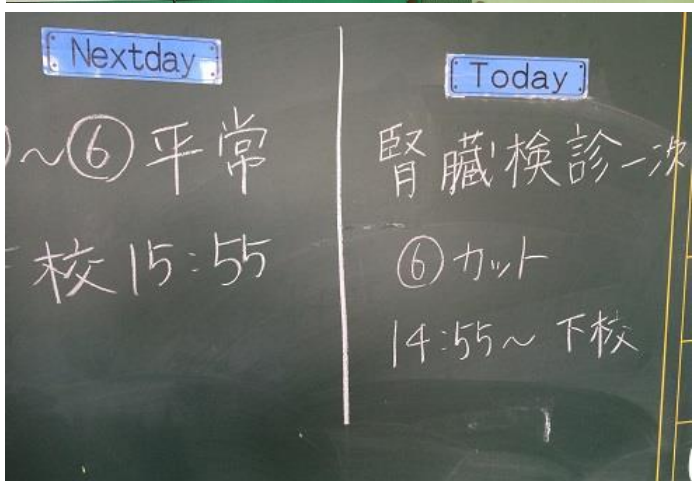 Nextday
~⑥ 平常
校 15:55
Today
腎臓検診一次
⑥ カット
14:55~ 下校